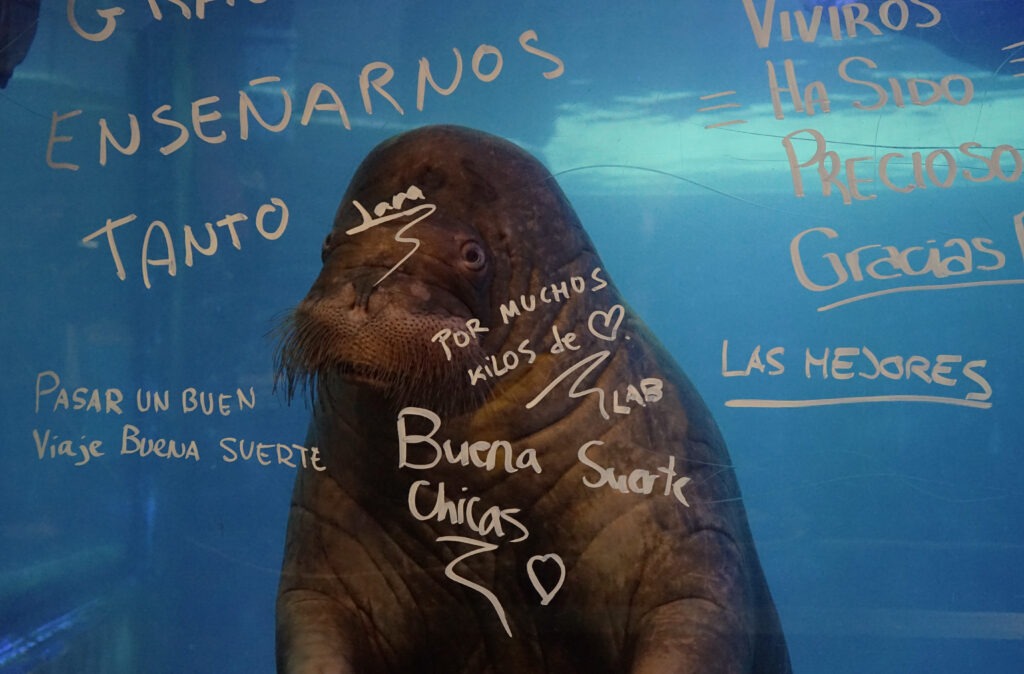 ENSEÑARNOS
TANTO
Jana
POR MUCHOS
KILOS de ♡.
LAB
PASAR UN BUEN
Viaje BUENA SUERTE
Buena Suerte
Chicas
♡
VIVIROS
= HA SIDO =
PRECIOSO
Gracias
LAS MEJORES